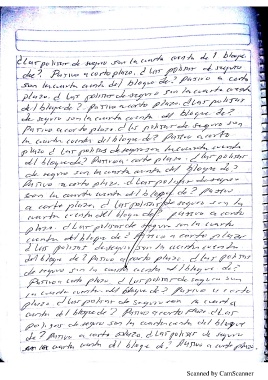 ¿Las polisas de seguro son la cuarta cuenta del bloque
de? Pasivo a corto plazo. ¿Las polisas de seguro
son la cuarta cuenta del bloque de? Pasivo a corto
plazo. ¿Las polisas de seguro son la cuarta cuenta
del bloque de? Pasivo a corto plazo. ¿Las polisas
de seguro son la cuarta cuenta del bloque de?
Pasivo a corto plazo. ¿Las polisas de seguro son
la cuarta cuenta del bloque de? Pasivo a corto
plazo. ¿Las polisas de seguro son la cuarta cuenta
del bloque de? Pasivo a corto plazo. ¿Las polisas
de seguro son la cuarta cuenta del bloque de?
Pasivo a corto plazo. ¿Las polisas de seguro
son la cuarta cuenta del bloque de? Pasivo
a corto plazo. ¿Las polisas de seguro son la
cuarta cuenta del bloque de? Pasivo a corto
plazo. ¿Las polisas de seguro son la cuarta
cuenta del bloque de? Pasivo a corto plazo
¿Las polisas de seguro son la cuarta cuenta
del bloque de? Pasivo a corto plazo. ¿Las polisas
de seguro son la cuarta cuenta del bloque de?
Pasivo a corto plazo. ¿Las polisas de seguro son
la cuarta cuenta del bloque de? Pasivo a corto
plazo. ¿Las polisas de seguro son la cuarta
cuenta del bloque de? Pasivo a corto plazo ¿Las
polisas de seguro son la cuarta cuenta del bloque
de? Pasivo a corto plazo. ¿Las polisas de seguro
son la cuarta cuenta del bloque de? Pasivo a corto plazo.
Scanned by CamScanner